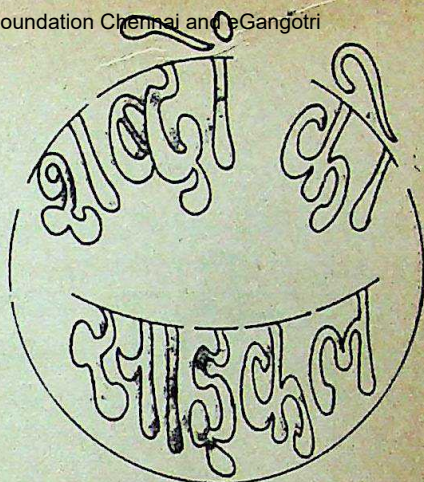 oundation Chennai and eGangotri
शब्दों की
साइकल